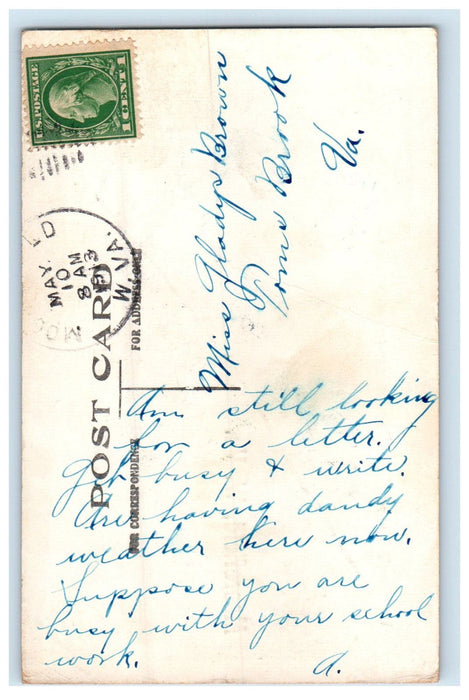 U.S. POSTAGE
1 CENT 1
MAY
10
8 AM
1913
W. VA.
POST CARD
FOR ADDRESS ONLY
FOR CORRESPONDENCE
Miss Gladys Brown
Toms Brook
Va.
Am still looking
for a letter.
Get busy & write.
Are having dandy
weather here now.
Suppose you are
busy with your school
work. A.